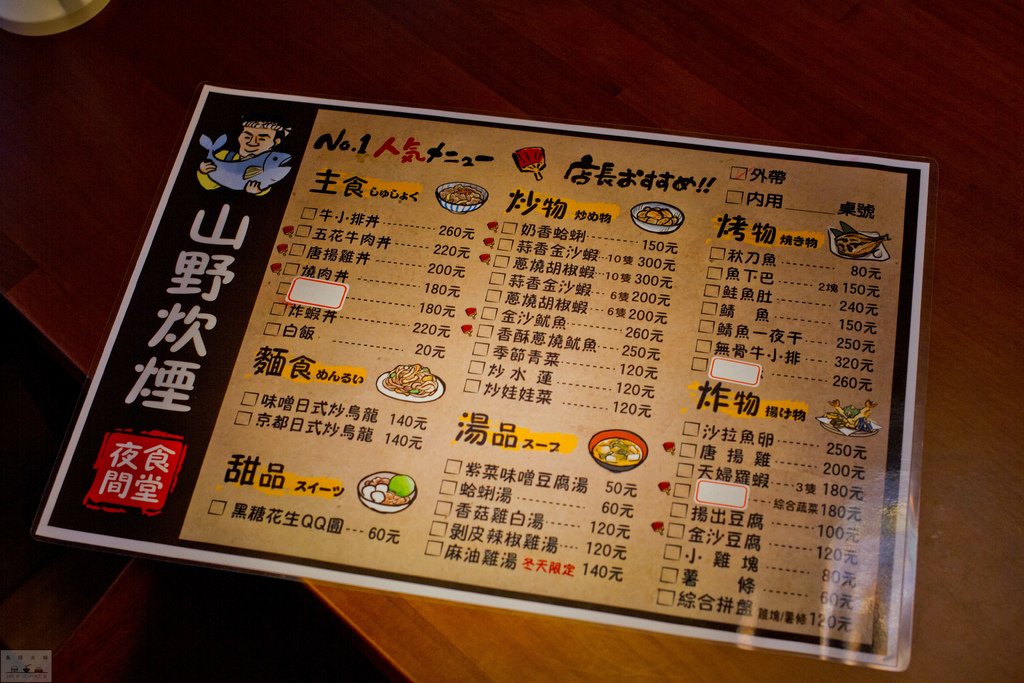 山野炊煙
夜食
間堂
No.1 人気メニュー
店長おすすめ!!
外帶
內用 桌號
主食 しゅしょく
牛小排丼 260元
五花牛肉丼 220元
唐揚雞丼 200元
燒肉丼 180元
180元
炸蝦丼 220元
白飯 20元
麵食 めんるい
味噌日式炒烏龍 140元
京都日式炒烏龍 140元
甜品 スイーツ
黑糖花生QQ圓 60元
炒物 炒め物
奶香蛤蜊 150元
蒜香金沙蝦 10隻 300元
蔥燒胡椒蝦 10隻 300元
蒜香金沙蝦 6隻 200元
蔥燒胡椒蝦 6隻 200元
金沙魷魚 260元
香酥蔥燒魷魚 250元
季節青菜 120元
炒水蓮 120元
炒娃娃菜 120元
湯品 スープ
紫菜味噌豆腐湯 50元
蛤蜊湯 60元
香菇雞白湯 120元
剝皮辣椒雞湯 120元
麻油雞湯 冬天限定 140元
烤物 焼き物
秋刀魚 80元
魚下巴 2塊 150元
鮭魚肚 240元
鯖魚 150元
鯖魚一夜干 250元
無骨牛小排 320元
260元
炸物 揚げ物
沙拉魚卵 250元
唐揚雞 200元
天婦羅蝦 3隻 180元
綜合蔬菜 180元
揚出豆腐 100元
金沙豆腐 120元
小雞塊 80元
薯條 60元
綜合拼盤 雞塊/薯條 120元